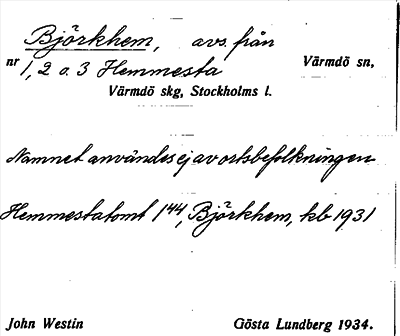 Björkhem, avs. från
nr 1, 2 o. 3 Hemmesta Värmdö sn,
Värmdö skg, Stockholms l.
Namnet användes ej av ortsbefolkningen
Hemmestatomt 1⁴⁴, Björkhem, kb 1931
John Westin Gösta Lundberg 1934.